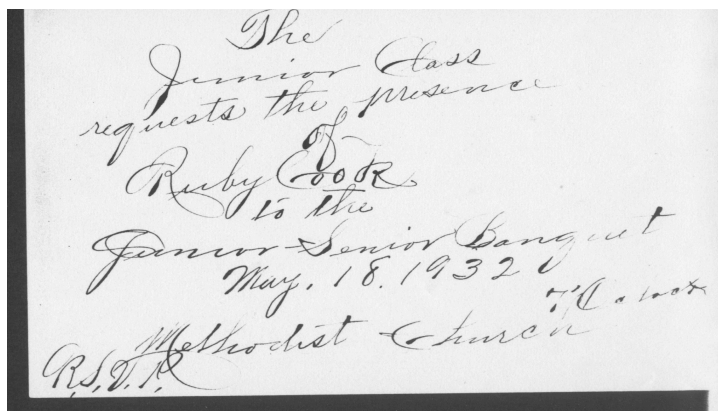 The
Junior Class
requests the presence
of
Ruby Cook
to the
Junior-Senior Banquet
May. 18. 1932
7 O'clock
Methodist Church
R.S.V.P.